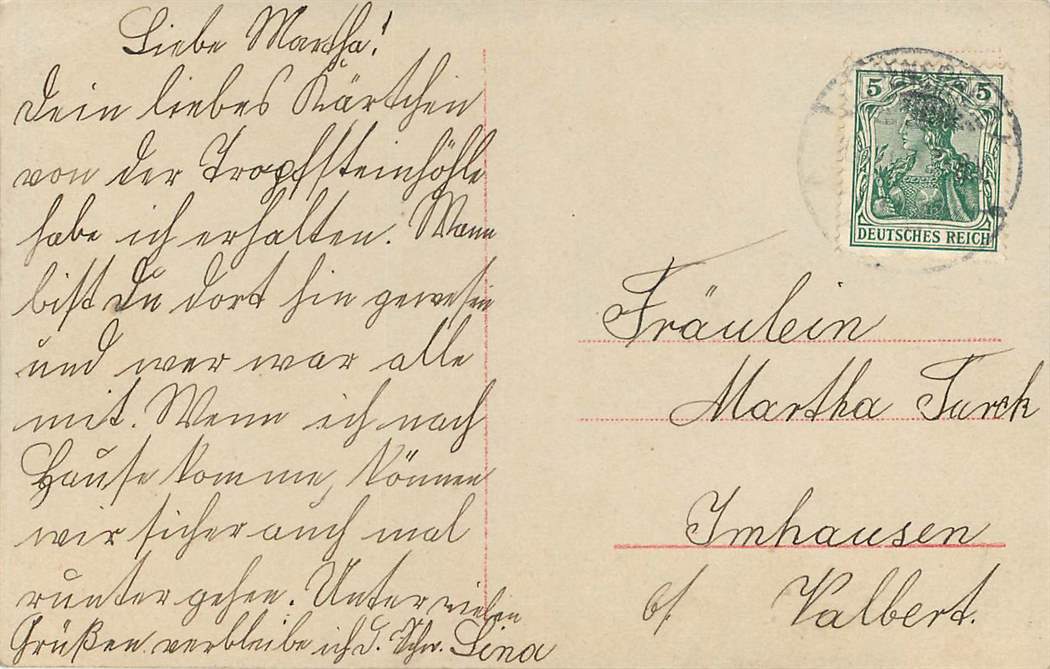 Liebe Martha!
Dein liebes Kärtchen
von der Tropfsteinhöhle
habe ich erhalten. Wann
bist Du dort hin gewesen
und wer war alle
mit. Wenn ich nach
Hause komme, können
wir sicher auch mal
runter gehen. Unter vielen
Grüßen verbleibe ich d. Schw. Lina
5 5
DEUTSCHES REICH
Fräulein
Martha Turck
Imhausen
b/. Valbert.